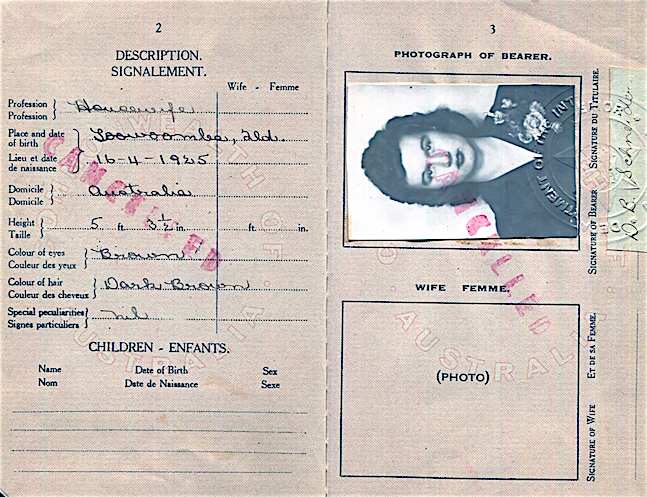 2
DESCRIPTION.
SIGNALEMENT.
Wife - Femme
Profession
Profession } Housewife
Place and date
of birth } Toowoomba, Qld.
Lieu et date
de naissance } 16-4-1925
Domicile
Domicile } Australia
Height
Taille } 5 ft. 3½ in. ft. in.
Colour of eyes
Couleur des yeux } Brown
Colour of hair
Couleur des cheveux } Dark Brown
Special peculiarities
Signes particuliers } nil
CANCELLED
CHILDREN - ENFANTS.
Name Date of Birth Sex
Nom Date de Naissance Sexe
3
PHOTOGRAPH OF BEARER.
CANCELLED
WIFE FEMME.
(PHOTO)
AUSTRALIA
SIGNATURE OF BEARER SIGNATURE DU TITULAIRE.
D. B.
SIGNATURE OF WIFE ET DE SA FEMME.